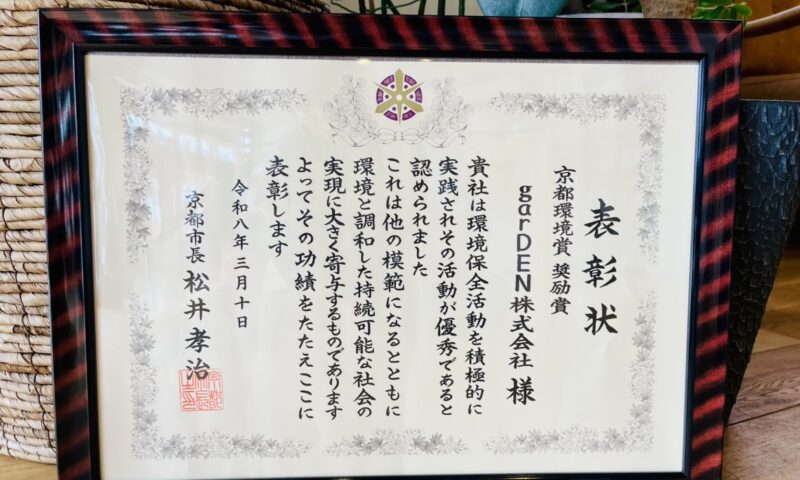 表彰状
京都環境賞 奨励賞
garDEN株式会社 様
貴社は環境保全活動を積極的に
実践されその活動が優秀であると
認められました
これは他の模範になるとともに
環境と調和した持続可能な社会の
実現に大きく寄与するものであります
よってその功績をたたえここに
表彰します
令和八年三月十日
京都市長 松井孝治